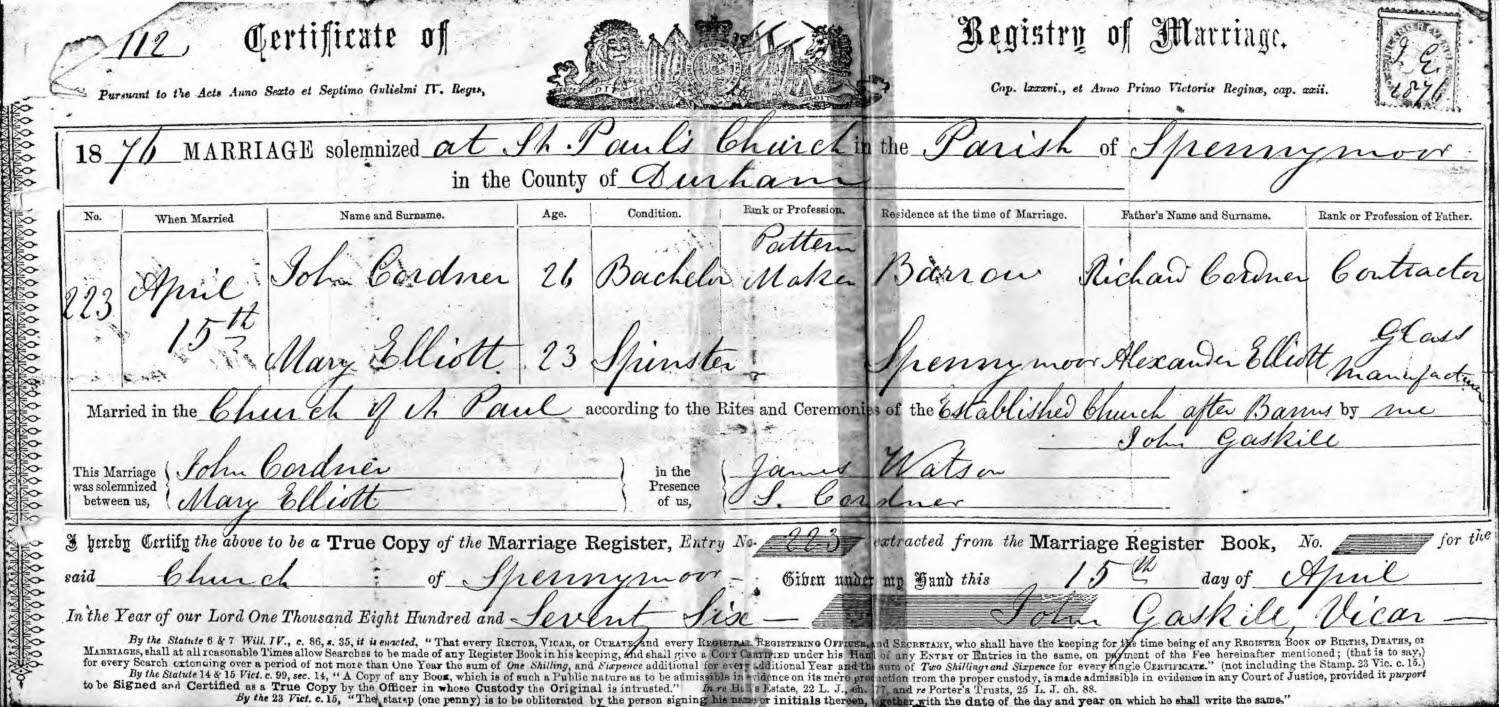 112 Certificate of Registry of Marriage.
Pursuant to the Acts Anno Sexto et Septimo Gulielmi IV. Regis, Cap. lxxxvi., et Anno Primo Victoriæ Reginæ, cap. xxii.
1876
1876 MARRIAGE solemnized at St. Paul's Church in the Parish of Spennymoor
in the County of Durham
No. When Married Name and Surname. Age. Condition. Rank or Profession. Residence at the time of Marriage. Father's Name and Surname. Rank or Profession of Father.
223 April 15th John Cordner 26 Bachelor Pattern Maker Barrow Richard Cordner Contractor
Mary Elliott 23 Spinster Spennymoor Alexander Elliott Glass Manufacturer
Married in the Church of St Paul according to the Rites and Ceremonies of the Established Church after Banns by me
John Gaskill
This Marriage was solemnized between us, John Cordner Mary Elliott in the Presence of us, James Watson S. Cordner
I hereby Certify the above to be a True Copy of the Marriage Register, Entry No. 223 extracted from the Marriage Register Book, No. for the
said Church of Spennymoor Given under my Hand this 15th day of April
In the Year of our Lord One Thousand Eight Hundred and Seventy Six John Gaskill, Vicar
By the Statute 6 & 7 Will. IV., c. 86, s. 35, it is enacted, "That every RECTOR, VICAR, or CURATE, and every REGISTRAR, REGISTERING OFFICER, and SECRETARY, who shall have the keeping for the time being of any REGISTER BOOK OF BIRTHS, DEATHS, or
MARRIAGES, shall at all reasonable Times allow Searches to be made of any Register Book in his keeping, and shall give a COPY CERTIFIED under his Hand of any ENTRY or Entries in the same, on payment of the Fee hereinafter mentioned; (that is to say,)
for every Search extending over a period of not more than One Year the sum of One Shilling, and Sixpence additional for every additional Year and the sum of Two Shillings and Sixpence for every single CERTIFICATE." (not including the Stamp. 23 Vic. c. 15.)
By the Statute 14 & 15 Vict. c. 99, sec. 14, "A Copy of any Book, which is of such a Public nature as to be admissible in evidence on its mere production from the proper custody, is made admissible in evidence in any Court of Justice, provided it purport
to be Signed and Certified as a True Copy by the Officer in whose Custody the Original is intrusted." In re Hall's Estate, 22 L. J., ch. 177, and re Porter's Trusts, 25 L. J. ch. 88.
By the 23 Vict. c. 15, "The stamp (one penny) is to be obliterated by the person signing his name or initials thereon, together with the date of the day and year on which he shall write the same."